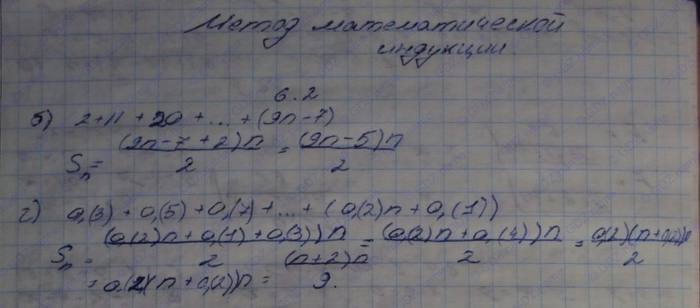 Метод математической
индукции.
6.2
б) 2+11+20+...+(9n-7)
Sn = (9n-7+2)n / 2 = (9n-5)n / 2
г) 0,(3)+0,(5)+0,(7)+...+(0,(2)n+0,(1))
Sn = (0,(2)n+0,(1)+0,(3))n / 2 = (0,(2)n+0,(4))n / 2 = 0,(2)(n+0,(2))n / 2
= 0,(1)(n+0,(2))n = (n+2)n / 9.